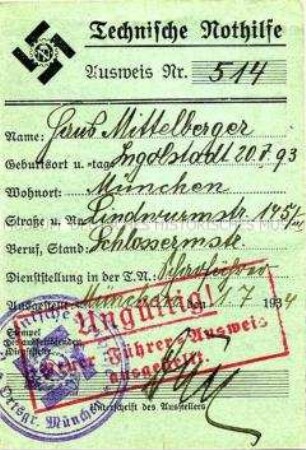 Technische Nothilfe
Ausweis Nr. 514
Name: Hans Mittelberger
Geburtsort u. -tag: Ingolstadt 20.7.93
Wohnort: München
Straße u. Nr. Lindwurmstr. 175/
Beruf, Stand: Schlossermstr.
Dienststellung in der T.N.: Scharführer
Ausgestellt: München den 1.7 1934
Ungültig!
Neuer Führer-Ausweis
ausgestellt.
Stempel
der ausstellenden
Dienststelle
Ortsgr. München
Unterschrift des Ausstellers